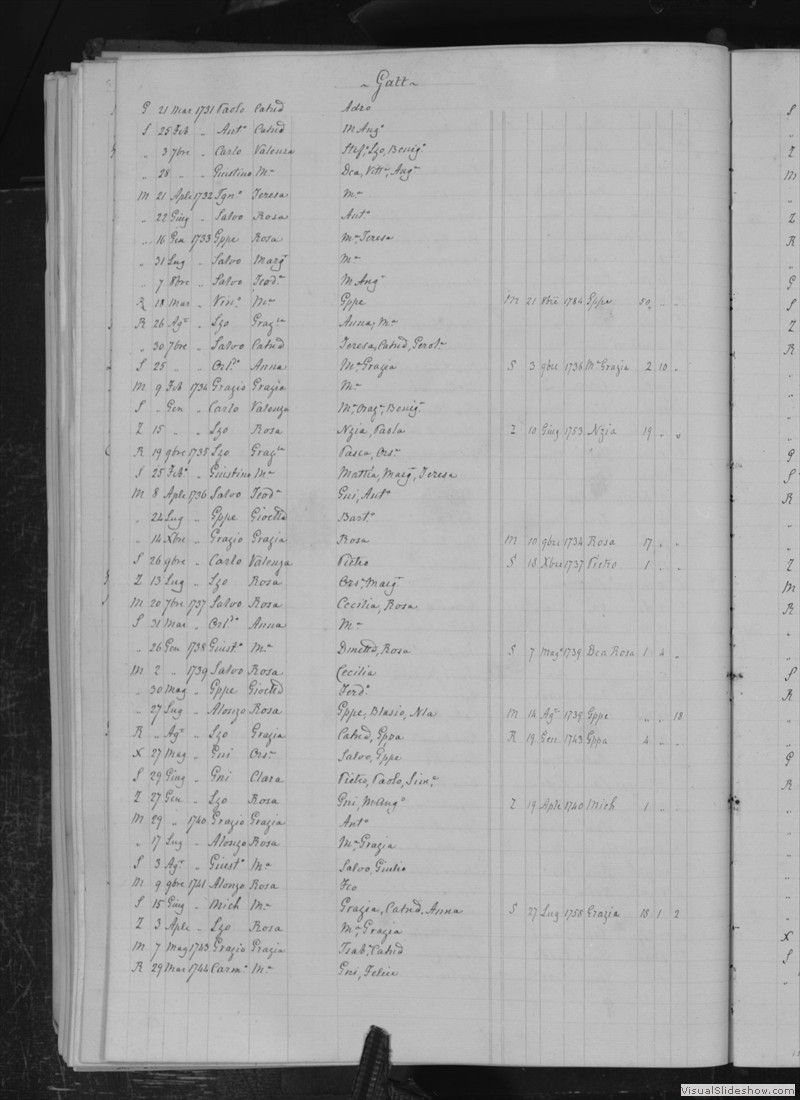 ~ Gatt ~
G 21 Mar 1731 Paolo Catnd Adzo
S 25 Feb „ Anto Catnd M Ango
„ 3 7bre „ Carlo Valenza Stefa, Lzo, Benigo
„ 28 „ „ Giustino Ma Dca, Vitta, Anga
M 21 Aple 1732 Igno Teresa Ma
„ 22 Giug „ Salvo Rosa Anto
„ 16 Gen 1733 Gppe Rosa Ma Teresa
„ 31 Lug „ Salvo Marga Ma
„ 7 8bre „ Salvo Teoda M Anga
R 18 Mar „ Vino Ma Gppe M 21 8bre 1784 Gppe 50 „ „
R 26 Ago „ Lzo Grazia Anna, Ma
„ 30 7bre „ Salvo Catnd Teresa, Catnd, Gerola
S 25 „ „ Orldo Anna Ma Grazia S 3 9bre 1736 Ma Grazia 2 10 „
M 9 Feb 1734 Grazio Grazia Ma
S „ Gen „ Carlo Valenza Ma, Oraza, Beniga
Z 15 „ „ Lzo Rosa Nzia, Paola Z 10 Giug 1753 Nzia 19 „ „
R 19 9bre 1735 Lzo Grazia Pasca, Orsa
S 25 Febo „ Giustino Ma Mattia, Marga, Teresa
M 8 Aple 1736 Salvo Teoda Gni, Anto
„ 24 Lug „ Gppe Gioctta Barto
„ 14 Xbre „ Grazio Grazia Rosa M 10 9bre 1734 Rosa 17 „ „
S 26 9bre „ Carlo Valenza Pietro S 18 Xbre 1737 Pietro 1 „ „
Z 13 Lug „ Lzo Rosa Orsa, Marga
M 20 7bre 1737 Salvo Rosa Cecilia, Rosa
S 31 Mar „ Orldo Anna Ma
„ 26 Gen 1738 Giusto Ma Dmettd, Rosa S 7 Mago 1739 Dca Rosa 1 4 „
M 2 „ 1739 Salvo Rosa Cecilia
„ 30 Mag „ Gppe Gioctd Ferdo
„ 27 Lug „ Alonzo Rosa Gppe, Blasio, Nla M 14 Ago 1739 Gppe „ „ 18
R „ Ago „ Lzo Grazia Catnd, Gppa R 19 Gen 1743 Gppa 4 „ „
X 27 Mag „ Gni Orsa Salvo, Gppe
S 29 Giug „ Gni Clara Pietro, Paolo, Sima
Z 27 Gen „ Lzo Rosa Gni, M Ango Z 19 Aple 1740 Mich 1 „ „
M 29 „ 1740 Grazio Grazia Anto
„ 17 Lug „ Alonzo Rosa Ma Grazia
S 3 Ago „ Giusto Ma Salvo, Giulio
M 9 9bre 1741 Alonzo Rosa Fco
S 15 Giug „ Mich Ma Grazia, Catnd, Anna S 27 Lug 1758 Grazia 18 1 2
Z 3 Aple „ Lzo Rosa Ma Grazia
M 7 Mag 1743 Grazio Grazia Isaba, Catnd
R 29 Mar 1744 Carmo Ma Gni, Felice
VisualSlideshow.com